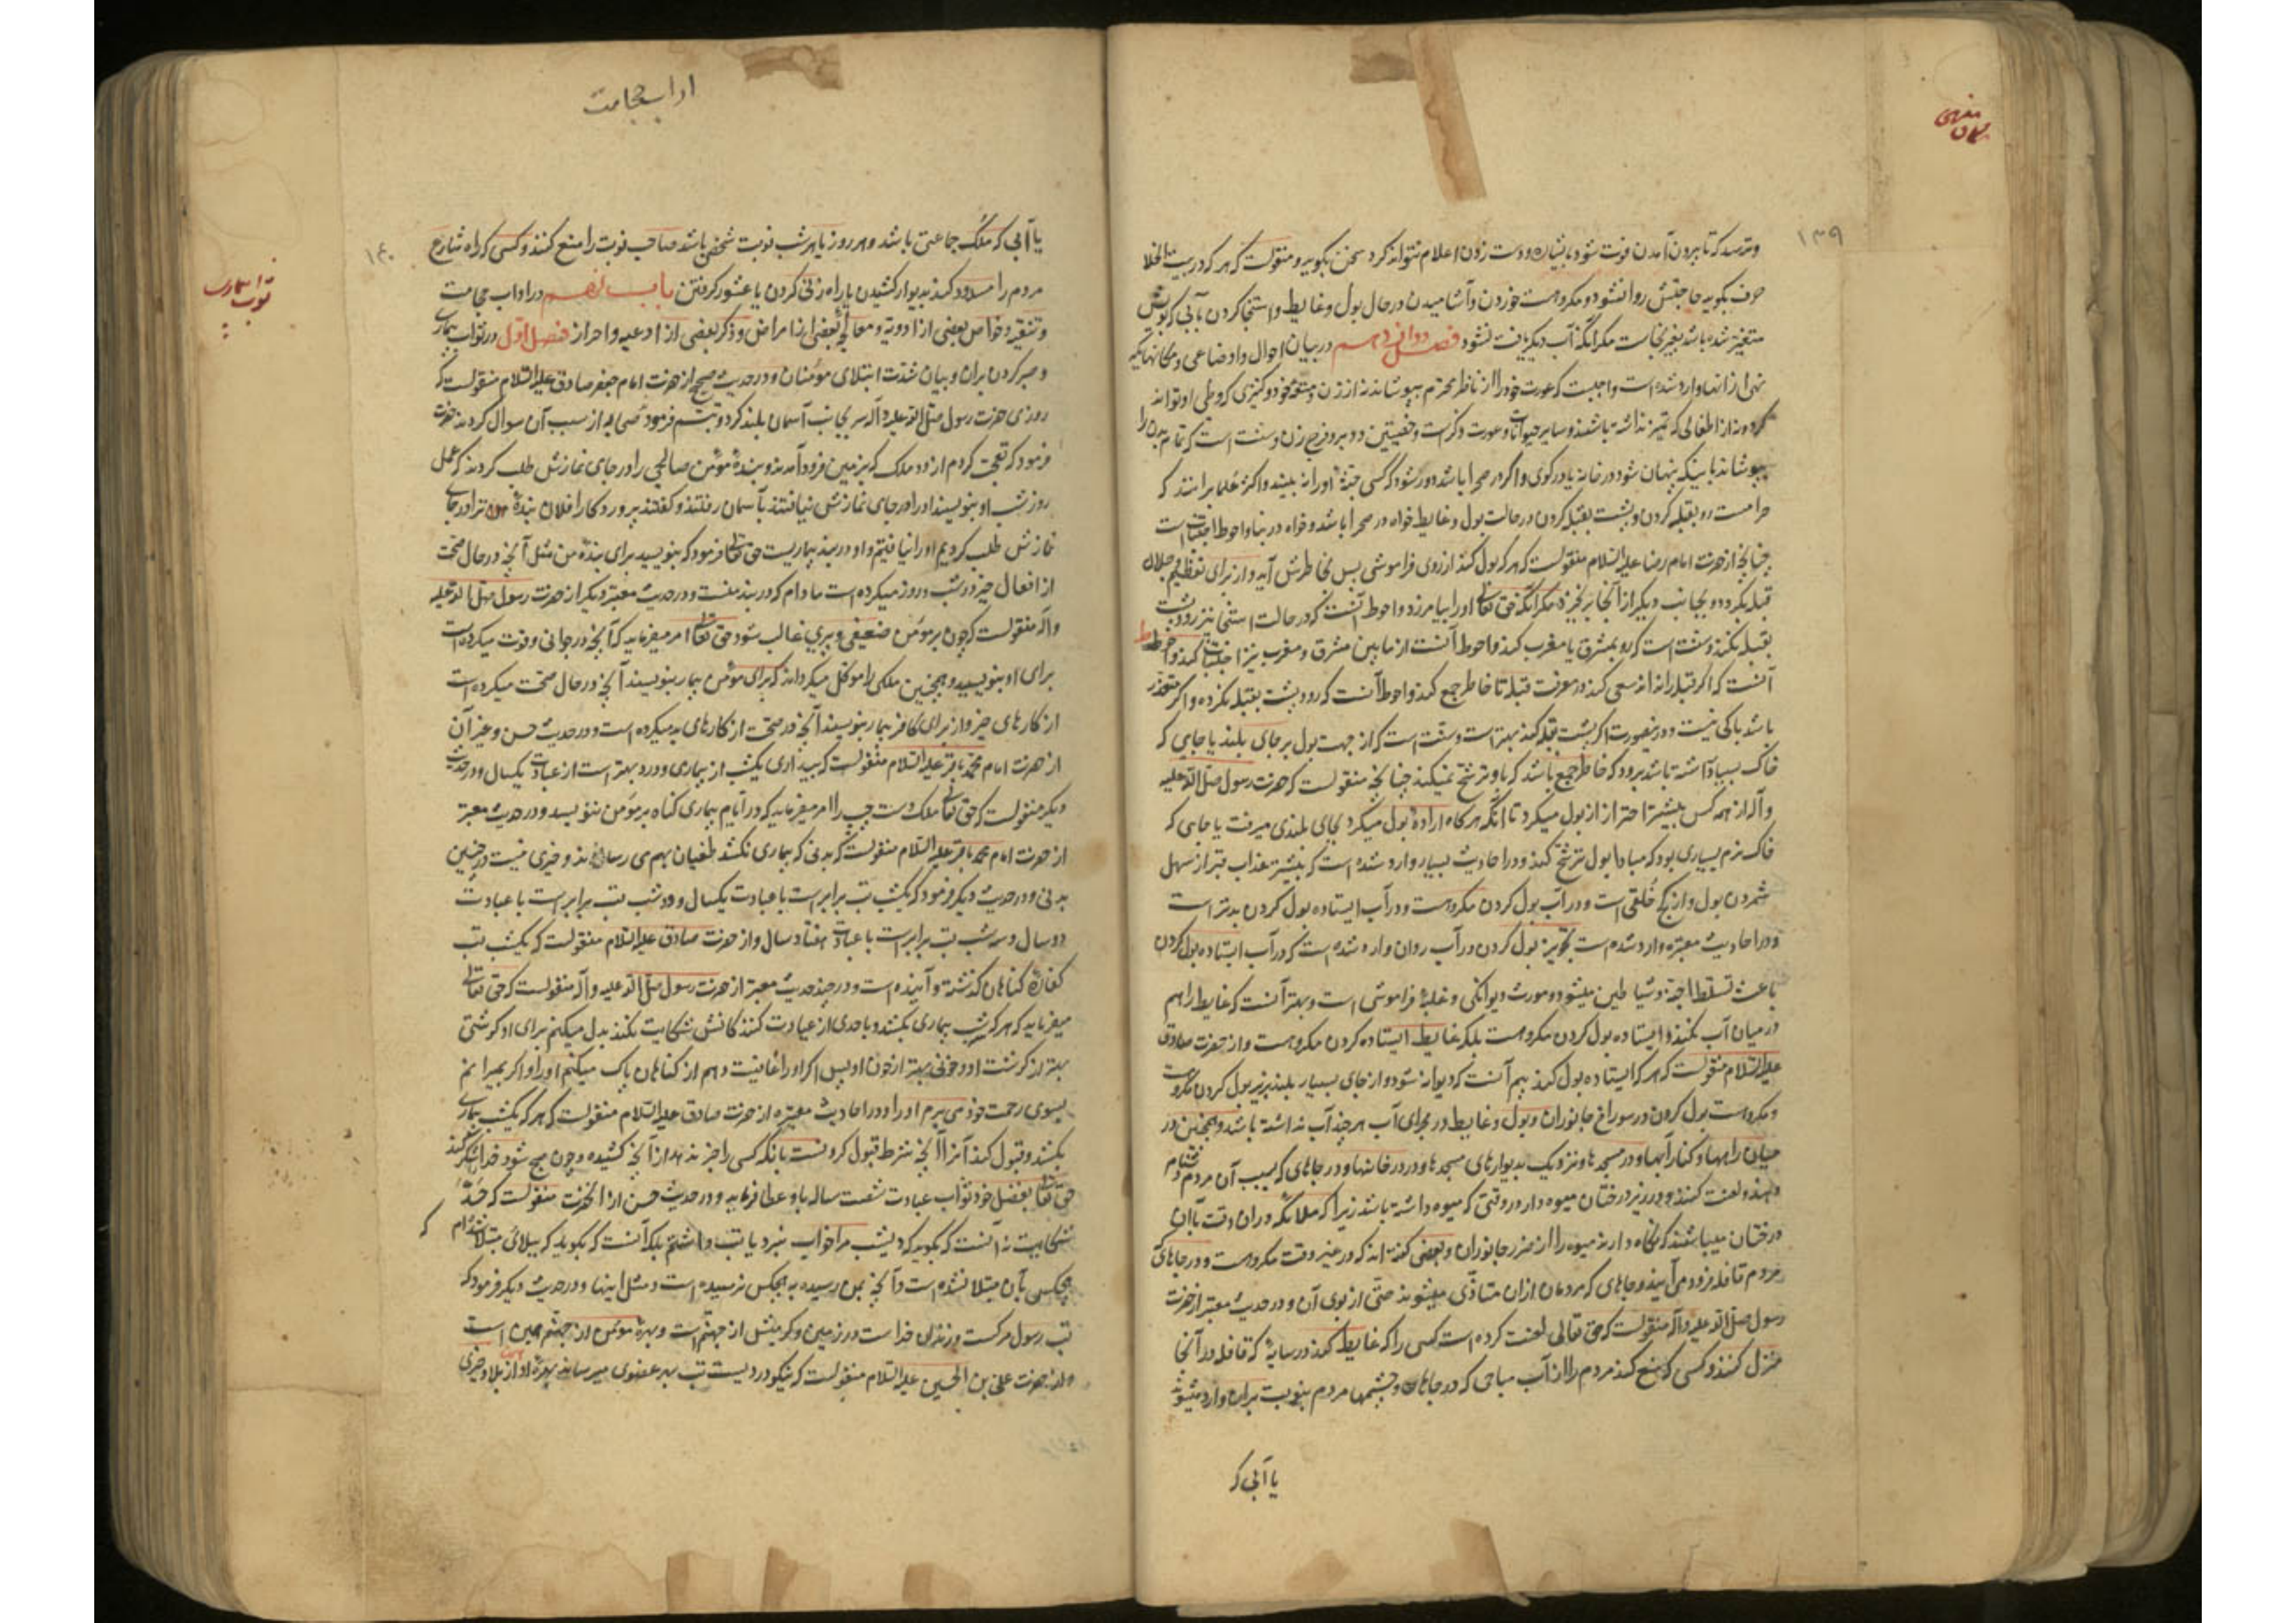 ۱۳۹
مکان منهی
وترسد که تا بیرون آمدن فوت شود باشاره و دست زدن اعلام نتواند کرد سخن بگوید و منقولست که هر که در بیت الخلا
حرف بگوید حاجتش روا نشود و مکروهست خوردن و آشامیدن در حال بول و غایط و استنجا کردن بآبی که بویش
متغیر شده باشد بغیر نجاست مگر آنکه آب دیگر یافت نشود فصل دوازدهم در بیان احوال و اوضاعی و مکانهائیکه
نهی از آنها وارد شده است واجبست که عورت خود را از ناظر محترم بپوشاند نه از زن و متعه خود و کنیزی که وطی او تواند
کرد و نه از اطفالی که تمیز نداشته باشند و سایر حیوانات و عورت ذکر است و خصیتین و دبر و فرج زن و سنت است که تمام بدن را
بپوشاند باینکه پنهان شود در خانه یا در گوی و اگر در صحرا باشد دور شود که کسی جثهٔ او را نه بیند و اکثر علما برانند که
حرامست رو بقبله کردن و پشت بقبله کردن در حالت بول و غایط خواه در صحرا باشد و خواه در بنا و احوط اجتناب است
چنانچه از حضرت امام رضا علیه السلام منقولست که هر که بول کند از روی فراموشی پس بخاطرش آید و از برای تعظیم جلال
قبله بگردد و بجانب دیگر از آنجا برنخیزد مگر آنکه حق تعالی او را بیامرزد و احوط آنست که در حالت استنجا نیز رو و پشت
بقبله نکند و سنت است که رو بمشرق یا مغرب کند و احوط آنست از مابین مشرق و مغرب نیز اجتناب کند و احوط
آنست که اگر قبله را نداند سعی کند در معرفت قبله تا خاطر جمع کند و احوط آنست که رو و پشت بقبله نکرده و اگر متعذر
باشد باکی نیست و در ینصورت اگر پشت بقبله کند بهتر است و سنت است که از جهت بول بر جای بلند یا جایی که
خاک بسیار داشته باشد برود که خاطر جمع باشد که باو ترشح نمیکند چنانچه منقولست که حضرت رسول صلی الله علیه
و آله از همه کس بیشتر احتراز از بول میکرد تا آنکه هرگاه ارادهٔ بول میکرد بجای بلندی میرفت یا جایی که
خاک نرم بسیاری بود که مبادا بول ترشح کند و در احادیث بسیار وارد شده است که بیشتر عذاب قبر از سهل
شمردن بول و از کج خلقی است و در آب بول کردن مکروهست و در آب ایستاده بول کردن بدتر است
و در احادیث معتبره وارد شده است تجویز بول کردن در آب روان وارد شده است که در آب ایستاده بول کردن
باعث تسلط اجنه و شیاطین میشود و مورث دیوانگی و غلبهٔ فراموشی است و بهتر آنست که غایط را هم
در میان آب نکنند و ایستاده بول کردن مکروهست بلکه غایط ایستاده کردن مکروهست و از حضرت صادق
علیه السلام منقولست که هر که ایستاده بول کند بیم آنست که دیوانه شود و از جای بسیار بلند بزیر بول کردن مکروهست
و مکروهست بول کردن در سوراخ جانوران و بول و غایط در مجرای آب هر چند آب نداشته باشد و همچنین در
میان راهها و کنار آبها و در مسجدها و نزدیک بدیوارهای مسجدها و در در خانها و در جاهای که بسبب آن مردم دشنام
دهند و لعنت کنند و در زیر درختان میوه دار در وقتی که میوه داشته باشد زیرا که ملائکه در ان وقت با آن
درختان میباشند که نگاه دارند میوه را از ضرر جانوران و بعضی گفته اند که در غیر وقت مکروهست و در جاهای که
مردم قافله فرود می آیند و جاهای که مردمان از ان متأذی میشوند حتی از بوی آن و در حدیث معتبر از حضرت
رسول صلی الله علیه و آله منقولست که حق تعالی لعنت کرده است کسی را که غایط کند در سایهٔ که قافله در آنجا
منزل کنند و کسی که منع کند مردم را از آب مباحی که در جاهای و چشمها مردم بنوبت بران وارد میشوند
یا آبی که
اداب حجامت
۱۴۰
ثواب بیماری
یا آبی که ملک جماعتی باشد و هر روز یا هر شب نوبت شخصی باشد صاحب نوبت را منع کنند و کسی که راه شارع
مردم را مسدود کند بدیوار کشیدن یا راه زنی کردن یا عشور گرفتن باب نهم در اداب حجامت
و تنقیه و خواص بعضی از ادویه و معالجهٔ بعضی از امراض و ذکر بعضی از ادعیه و احراز فصل اول در ثواب بیماری
و صبر کردن بران و بیان شدت ابتلای مؤمنان و در حدیث صحیح از حضرت امام جعفر صادق علیه السلام منقولست که
روزی حضرت رسول صلی الله علیه و آله سر بجانب آسمان بلند کرد و تبسم فرمود صحابه از سبب آن سوال کردند حضرت
فرمود که تعجب کردم از دو ملک که بزمین فرود آمدند و بندهٔ مؤمن صالحی را در جای نمازش طلب کردند که عمل
روز و شب او بنویسند او را در جای نمازش نیافتند بآسمان رفتند و گفتند پروردگارا فلان بندهٔ مؤمن ترا در جای
نمازش طلب کردیم او را نیافتیم و او در بند بیماریست حق تعالی فرمود که بنویسید برای بندهٔ من مثل آنچه در حال صحت
از افعال خیر در شب و روز میکرده است مادام که در بند منست و در حدیث معتبر دیگر از حضرت رسول صلی الله علیه
و آله منقولست که چون بر مؤمن ضعیفی و پیری غالب شود حق تعالی امر میفرماید که آنچه در جوانی و قوت میکرده است
برای او بنویسید و همچنین ملکی را موکل میگرداند که برای مؤمن بیمار بنویسند آنچه در حال صحت میکرده است
از کارهای خیر و از برای کافر بیمار بنویسند آنچه در صحت از کارهای بد میکرده است و در حدیث حسن و غیر آن
از حضرت امام محمد باقر علیه السلام منقولست که بیداری یکشب از بیماری و درد بهتر است از عبادت یکسال و در حدیث
دیگر منقولست که حق تعالی ملک دست چپ را امر میفرماید که در ایام بیماری گناه بر مؤمن ننویسد و در حدیث معتبر
از حضرت امام محمد باقر علیه السلام منقولست که بدنی که بیماری نکشد طغیان بهم می رساند و خیری نیست در چنین
بدنی و در حدیث دیگر فرمود که یکشب تب برابر است با عبادت یکسال و دو شب تب برابر است با عبادت
دو سال و سه شب تب برابر است با عبادت هفتاد سال و از حضرت صادق علیه السلام منقولست که یکشب تب
کفارهٔ گناهان گذشته و آینده است و در چند حدیث معتبر از حضرت رسول صلی الله علیه و آله منقولست که حق تعالی
میفرماید که هر که سه شب بیماری بکشد و باحدی از عیادت کنندگانش شکایت نکند بدل میکنم برای او گوشتی
بهتر از گوشت او و خونی بهتر از خون او پس اگر او را عافیت دهم از گناهان پاک میکنم او را و اگر بمیرانم
بسوی رحمت خود می برم او را و در احادیث معتبره از حضرت صادق علیه السلام منقولست که هر که یکشب بیماری
بکشد و قبول کند آنرا آنچه شرط قبول کردنست بآنکه کسی را خبر ندهد از آنچه کشیده و چون صبح شود خدا را شکر کند
حق تعالی بفضل خود ثواب عبادت شصت ساله باو عطا فرماید و در حدیث حسن از آنحضرت منقولست که حد
شکایت نه آنست که بگوید که دیشب مرا خواب نبرد یا تب داشتم بلکه آنست که بگوید که ببلائی مبتلا شده ام که
هیچکس بآن مبتلا نشده است و آنچه بمن رسیده به هیچکس نرسیده است و مثل اینها و در حدیث دیگر فرمود که
تب رسول مرگست و زندان خداست در زمین و گرمیش از جهنم است و بهرهٔ مؤمن از جهنم همین است
و از حضرت علی بن الحسین علیه السلام منقولست که نیکو دردیست تب بهر عضوی میرساند بهرهٔ او از بلا و خیری